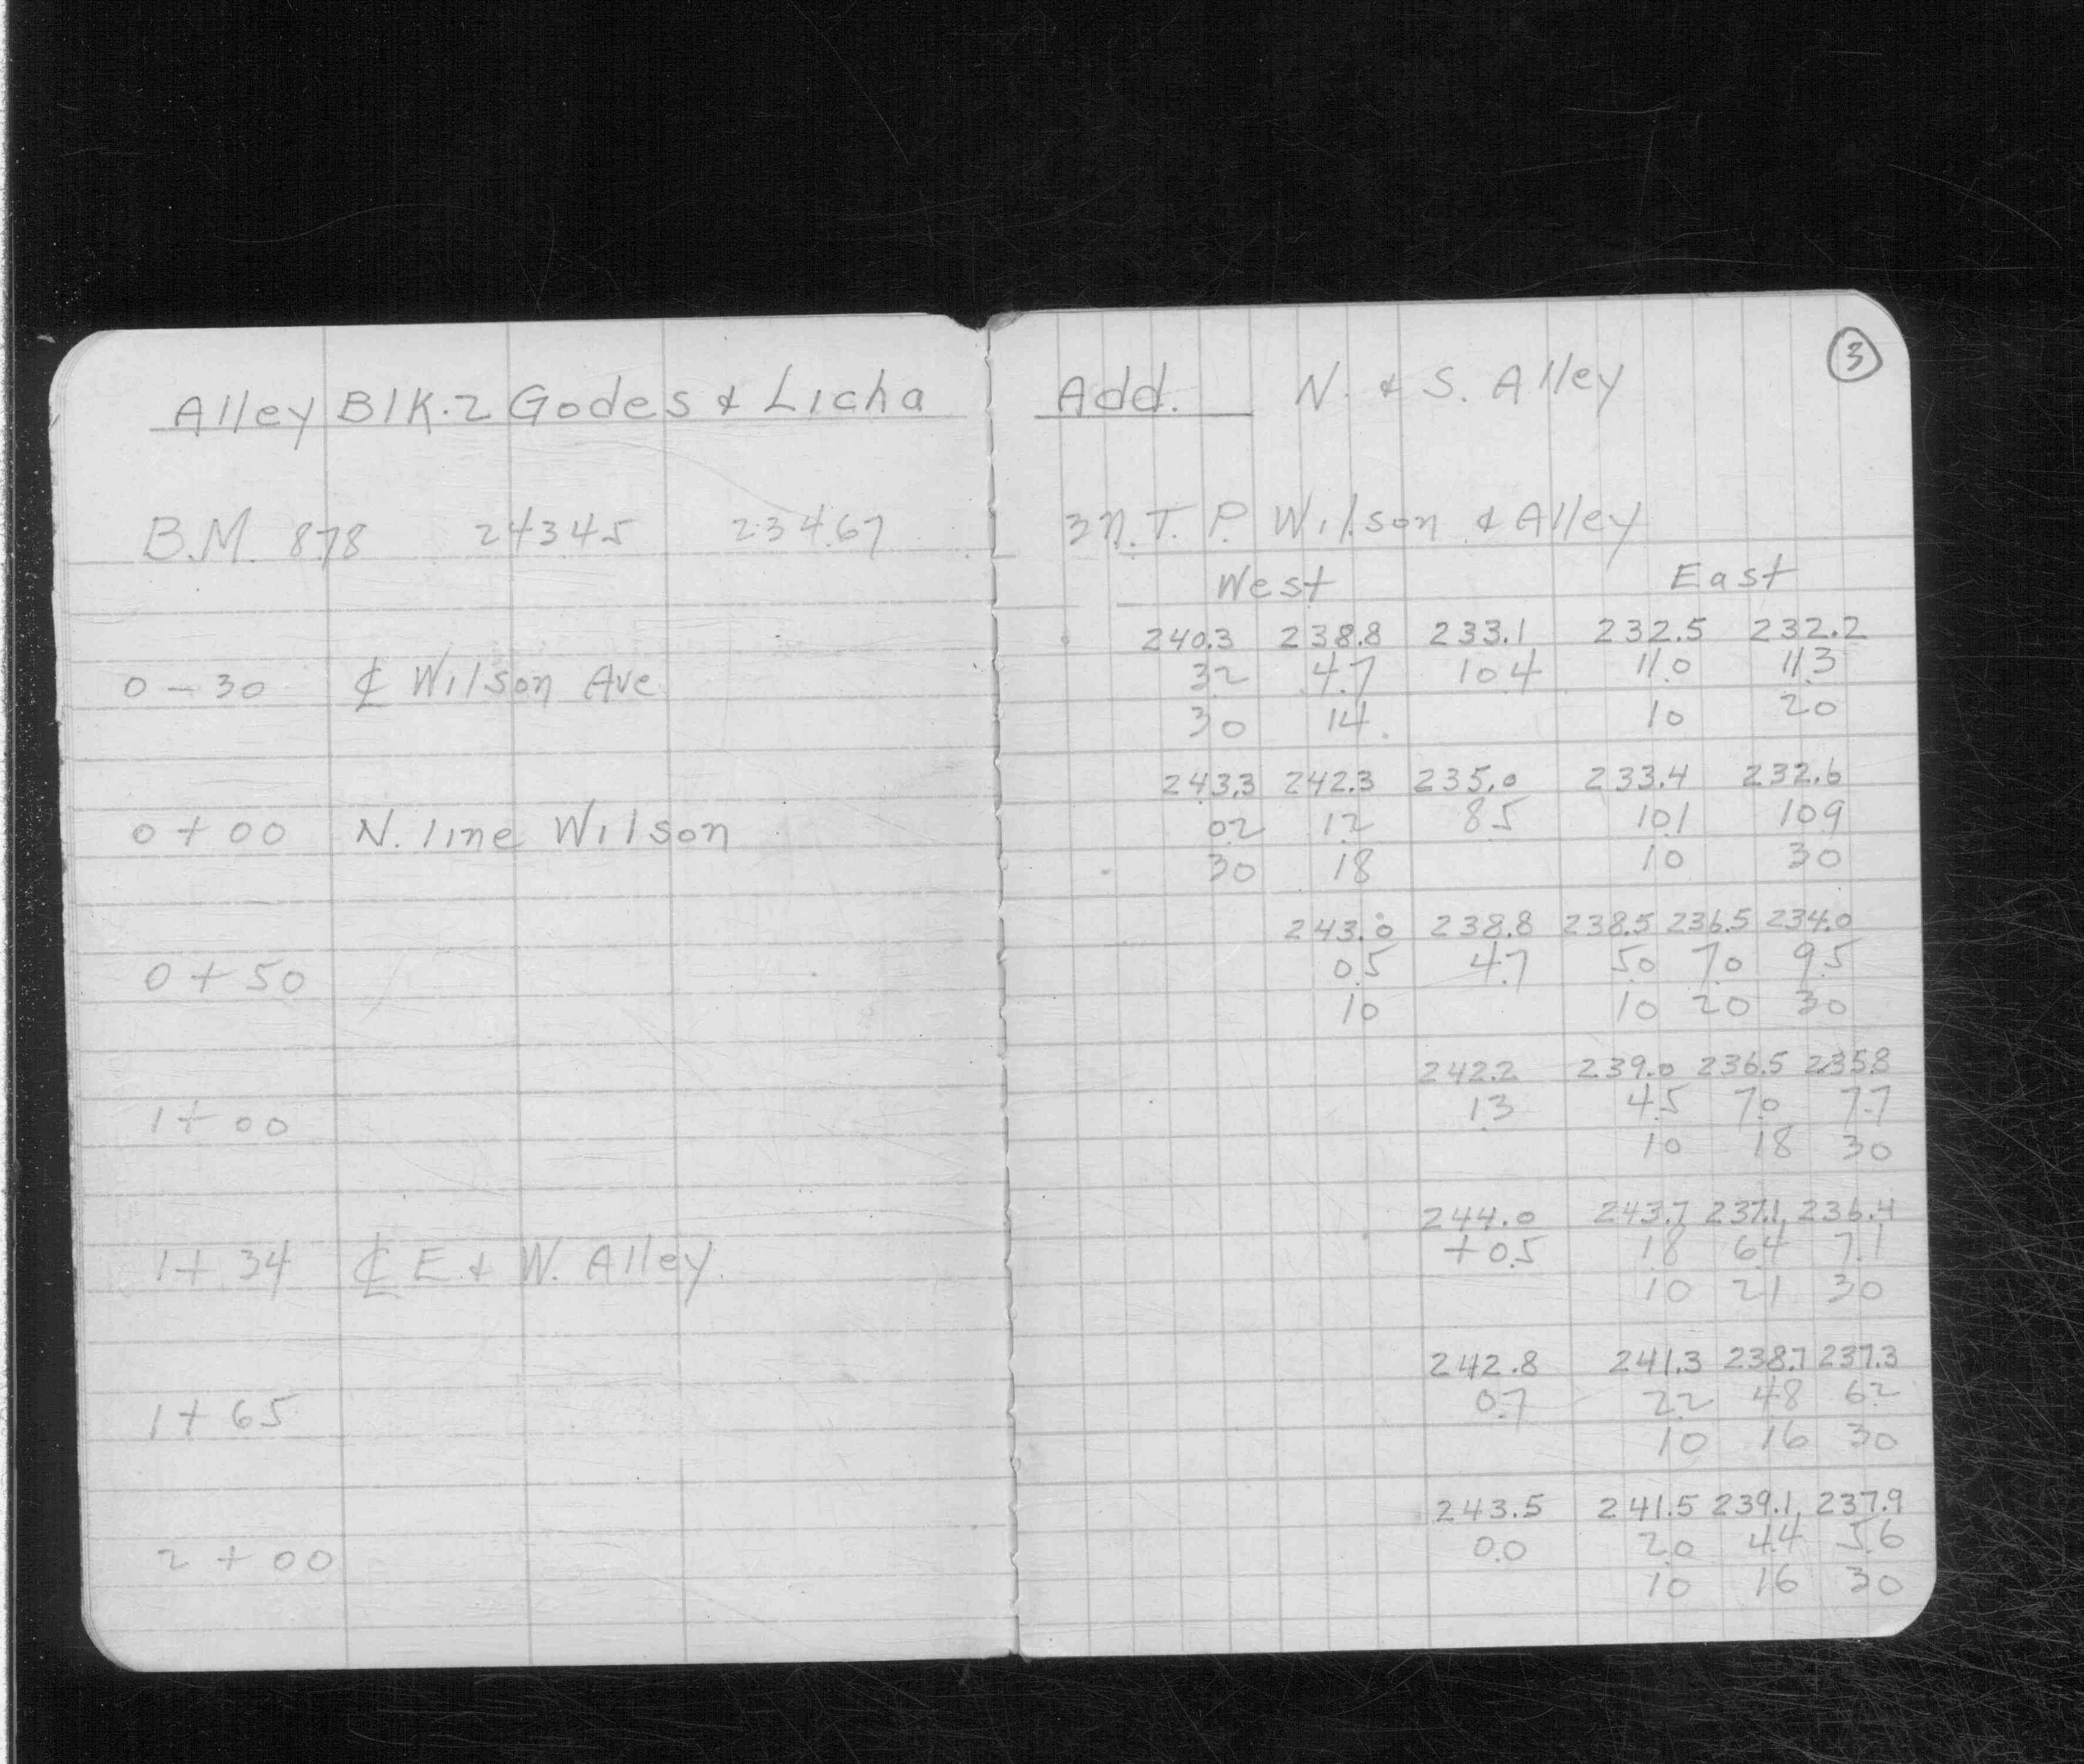 Alley Blk. 2 Godes & Licha Add. N. & S. Alley
3
B.M. 878 243.45 234.67 T. P. Wilson & Alley
West East
240.3 238.8 233.1 232.5 232.2
0 - 30 ℄ Wilson Ave 3.2 4.7 10.4 11.0 11.3
30 14 10 20
243.3 242.3 235.0 233.4 232.6
0 + 00 N. line Wilson 0.2 1.2 8.5 10.1 10.9
30 18 10 30
243.0 238.8 238.5 236.5 234.0
0 + 50 0.5 4.7 5.0 7.0 9.5
10 10 20 30
242.2 239.0 236.5 235.8
1 + 00 1.3 4.5 7.0 7.7
10 18 30
244.0 243.7 237.1 236.4
1 + 34 ℄ E & W. Alley + 0.5 1.8 6.4 7.1
10 21 30
242.8 241.3 238.7 237.3
1 + 65 0.7 2.2 4.8 6.2
10 16 30
243.5 241.5 239.1 237.9
2 + 00 0.0 2.0 4.4 5.6
10 16 30